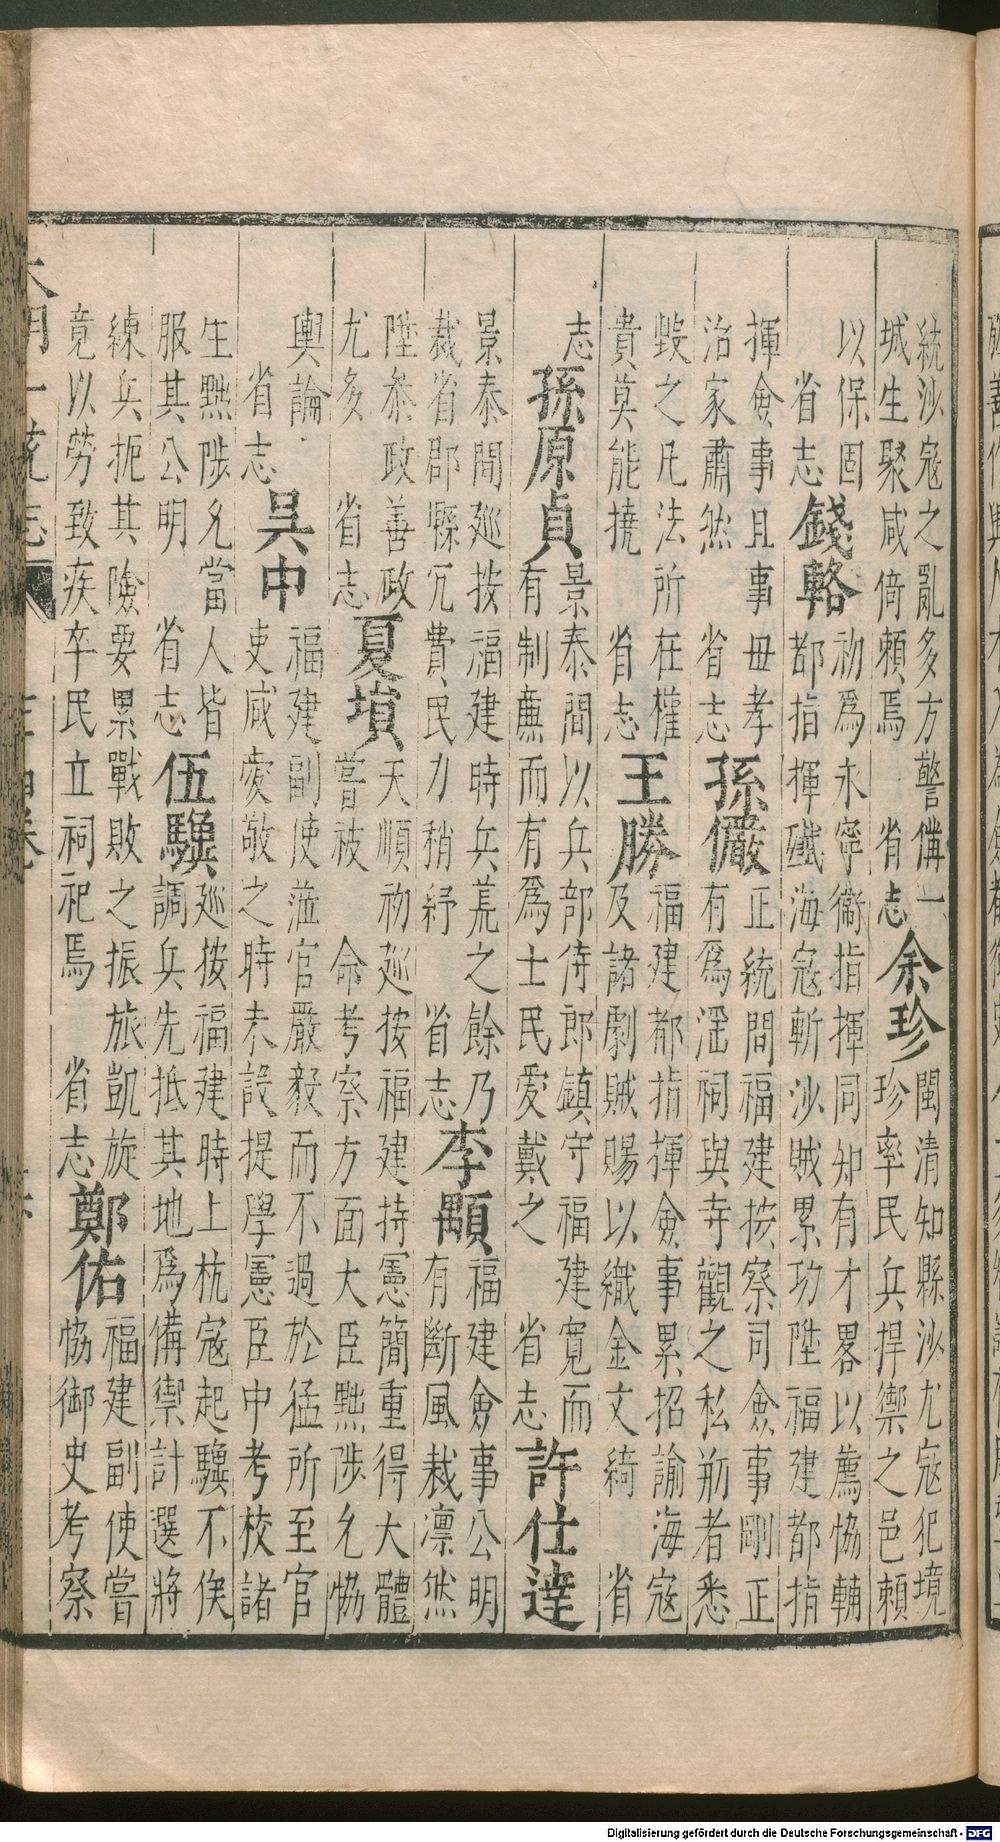 統沙寇之亂多方警備一
城生聚咸倚賴焉 省志
余珍
閩清知縣沙尤寇犯境
珍率民兵捍禦之邑賴
以保固
省志
錢輅
初爲永寧衞指揮同知有才畧以薦協輔
都指揮殱海寇斬沙賊累功陞福建都指
揮僉事且事毋孝
治家肅然 省志
孫儼
正統間福建按察司僉事剛正
有爲淫祠與寺觀之私剏者悉
毀之凡法所在權
貴莫能撓 省志
王勝
福建都指揮僉事累招諭海寇
及諸劇賊賜以織金文綺 省
志
孫原貞
景泰間以兵部侍郎鎮守福建寬而
有制廉而有爲士民愛戴之 省志
許仕達
景泰間廵按福建時兵荒之餘乃
裁省郡縣冗費民力稍紓 省志
李顒
福建僉事公明
有斷風裁凛然
陞叅政善政
尤多 省志
夏塤
天順初廵按福建持憲簡重得大體
嘗被 命考察方面大臣黜陟允恊
輿論
省志
吳中
福建副使蒞官嚴毅而不過於猛所至官
吏咸愛敬之時未設提學憲臣中考校諸
生黜陟允當人皆
服其公明 省志
伍驥
廵按福建時上杭寇起驥不俟
調兵先抵其地爲備禦計選將
練兵扼其險要累戰敗之振旅凱旋
竟以勞致疾卒民立祠祀焉 省志
鄭佑
福建副使嘗
恊御史考察
大明一統志
Digitalisierung gefördert durch die Deutsche Forschungsgemeinschaft - DFG